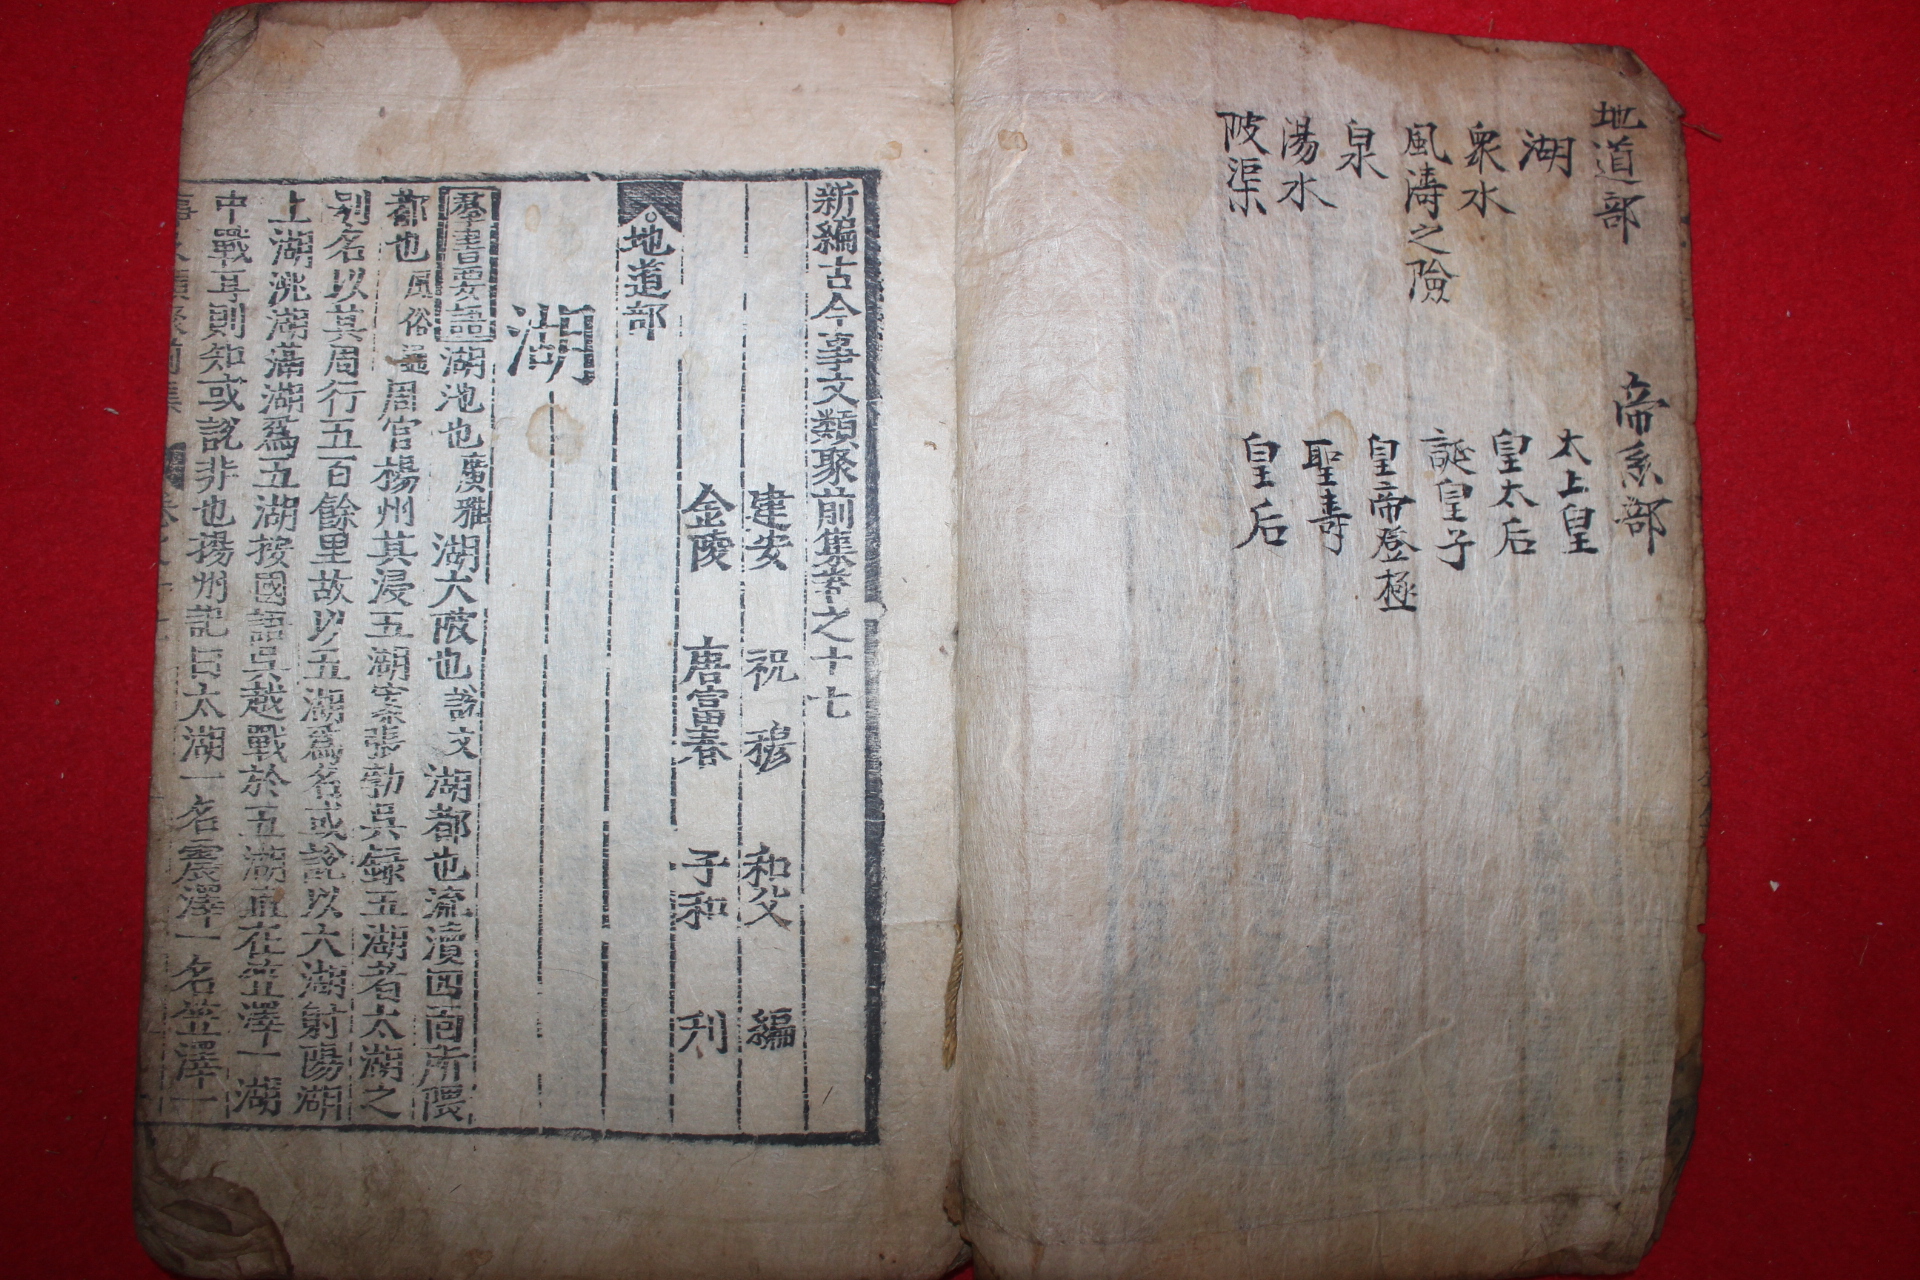 地道部
湖
衆水
風濤之險
泉
湯水
陂渠
帝系部
太上皇
皇太后
誕皇子
皇帝登極
聖壽
皇后
新編古今事文類聚前集卷之十七
建安 祝穆 和父 編
金陵 唐富春 子和 刋
地道部
湖
羣書要語 湖池也廣雅湖大陂也說文湖都也流瀆四面所隈
都也風俗通周官楊州其浸五湖案張勃吳録五湖者太湖之
别名以其周行五百餘里故以五湖爲名或說以太湖射陽湖
上湖洮湖滆湖爲五湖按國語吳越戰於五湖直在笠澤一湖
中戰耳則知或說非也揚州記曰太湖一名震澤一名笠澤一